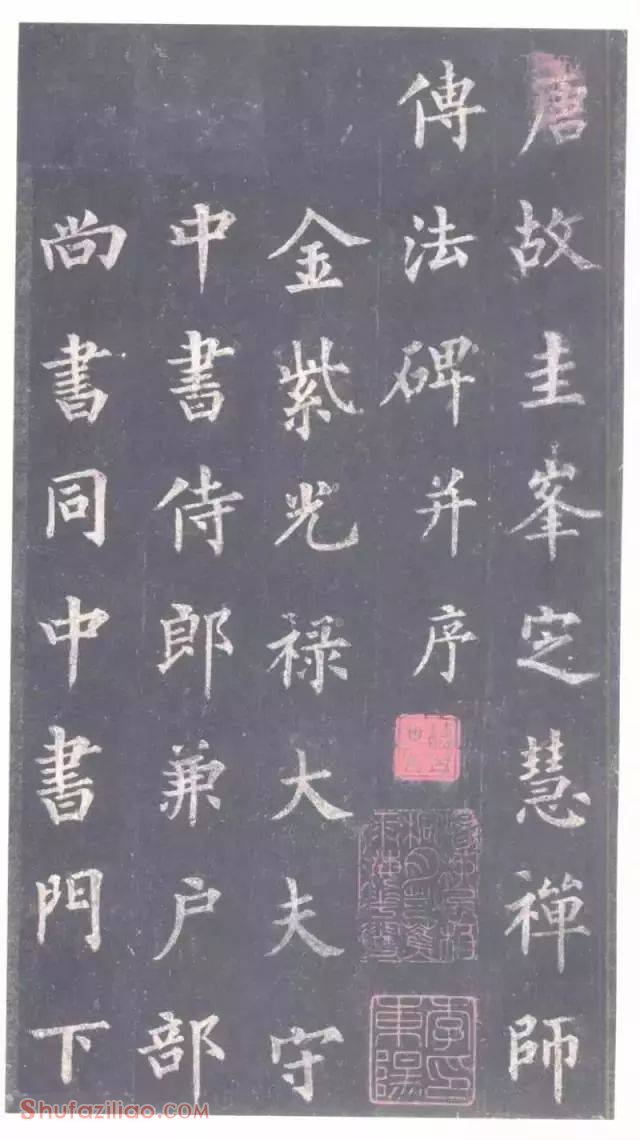 唐故圭峯定慧禪師
傳法碑并序
金紫光禄大夫守
中書侍郎兼户部
尚書同中書門下
Shufaziliao.com